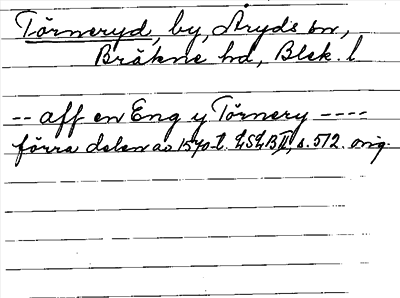 Törneryd, by, Åryds sn,
Bräkne hd, Blek. l
-- aff en Eng y Törnery ----
förra delen av 1540-t. HSH B II, s. 572. orig.